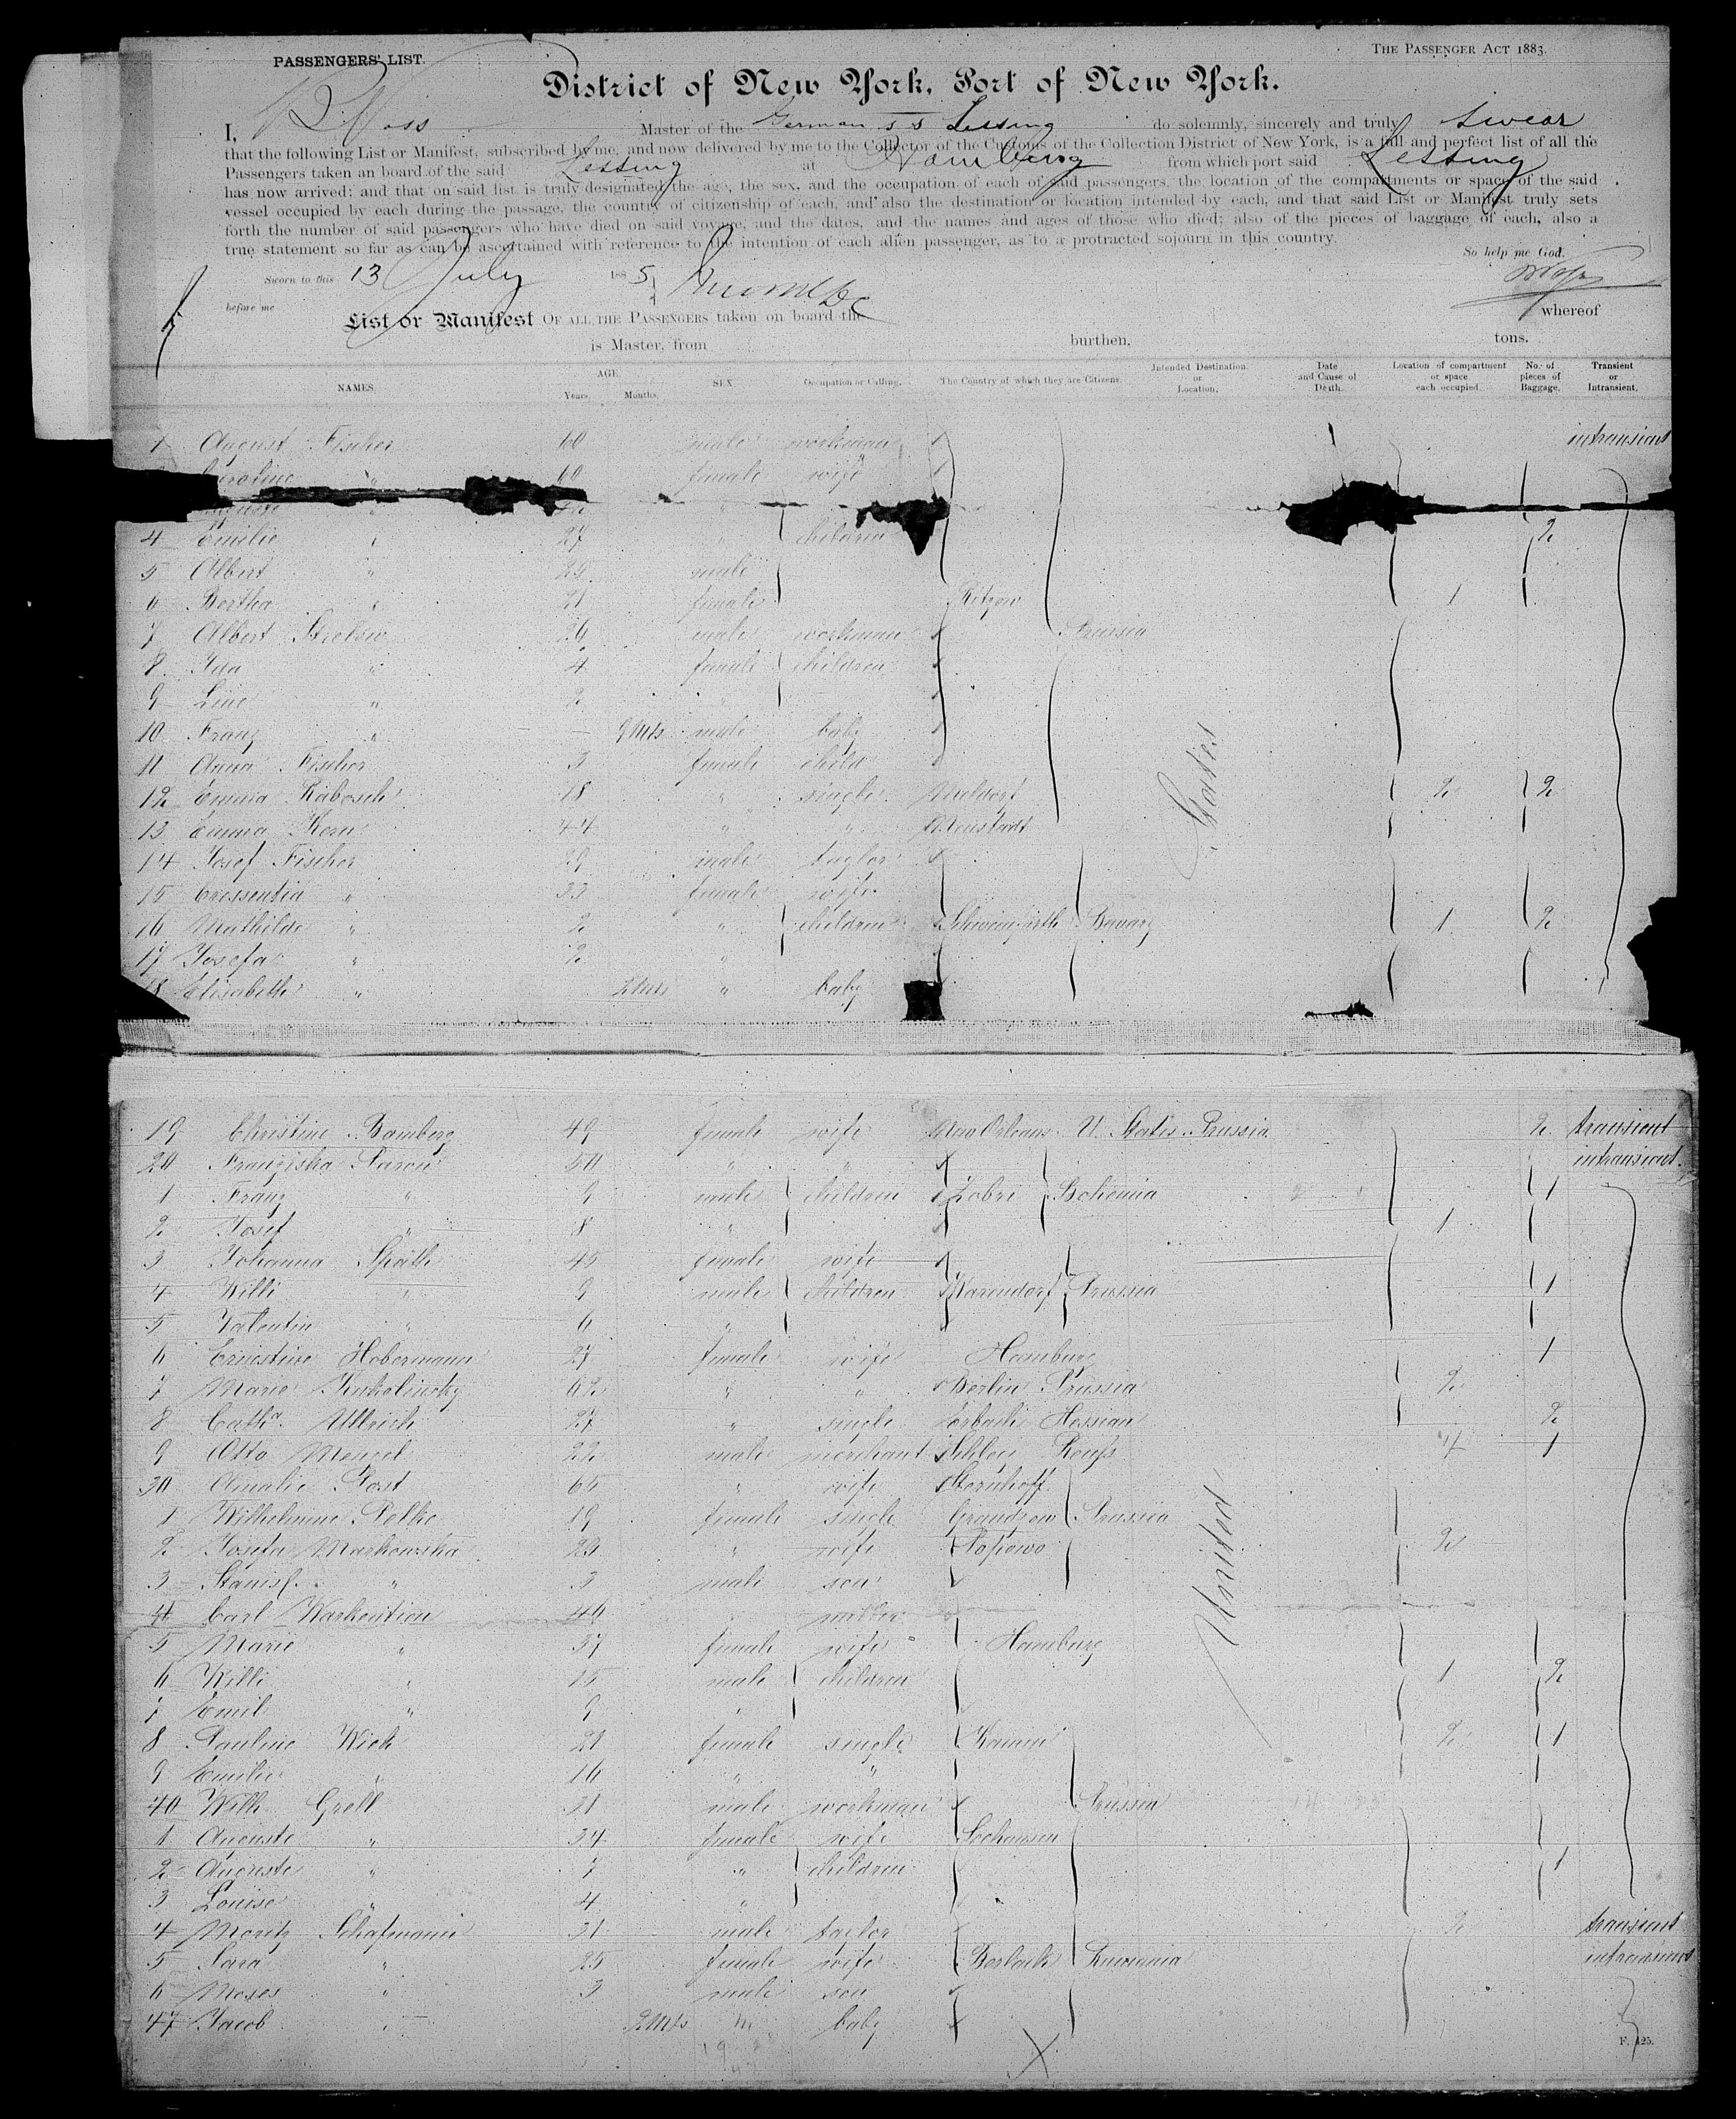 PASSENGERS' LIST.
THE PASSENGER ACT 1883.
District of New York, Port of New York.
I, Master of the German s s Lessing do solemnly, sincerely and truly swear
that the following List or Manifest, subscribed by me, and now delivered by me to the Collector of the Customs of the Collection District of New York, is a full and perfect list of all the
Passengers taken on board of the said Lessing at Hamburg from which port said Lessing
has now arrived; and that on said list is truly designated the age, the sex, and the occupation of each of said passengers, the location of the compartments or space of the said
vessel occupied by each during the passage, the country of citizenship of each, and also the destination or location intended by each, and that said List or Manifest truly sets
forth the number of said passengers who have died on said voyage, and the dates, and the names and ages of those who died; also of the pieces of baggage of each, also a
true statement so far as can be ascertained with reference to the intention of each alien passenger, as to a protracted sojourn in this country.
So help me God.
Sworn to this 13 July 1885
before me
List or Manifest OF ALL THE PASSENGERS taken on board the whereof
is Master, from burthen, tons.
NAMES. AGE. Years. Months. SEX. Occupation or Calling. The Country of which they are Citizens. Intended Destination or Location. Date and Cause of Death. Location of compartment or space each occupied. No. of pieces of Baggage. Transient or Intransient.
1 August Fischer 60 male workman intransient
" 60 female wife
"
4 Emilie " 27 " children 2
5 Albert " 25 male
6 Bertha " 21 female Ritzow 1
7 Albert Strelow 26 male workman Prussia
8 Ida " 4 female children
9 Line " 2 "
10 Franz " — 9 Mts male baby
11 Anna Fischer 3 female child
12 Emma Rabosch 18 " single Meldorf 2 2
13 Emma Kern 44 " " Neustadt
States
14 Josef Fischer 29 male taylor
15 Cressentia " 33 female wife
16 Mathilde " 2 " children Schweinfurth Bavary 1 2
17 Josefa " 2 "
18 Elisabeth " 2 Mts " baby
19 Christine Bamberg 49 female wife New Orleans U. States. Prussia 2 transient
20 Franziska 50 " " intransient
1 Franz " 9 male children Bohemia 1
2 Josef " 8 " 1
3 Johanna Späth 45 female wife
4 Willi " 9 male children Warendorf Prussia 1
5 Valentin " 6 "
6 Ernestine Hobermann 27 female wife Hamburg 1
7 Marie 62 " " Berlin Prussia 2
8 Catha. Ullrich 27 " single Hessian 2
9 Otto Mengel 22 male merchant Schleiz Reuss 4 1
30 Amalie Post 65 " wife
1 Wilhelmine 19 female single Prussia
2 Josefa Markowska 20 " wife Popowo 2
3 Stanisl. " 3 male son
4 Carl Warkentien 46 " miller
5 Marie " 37 female wife Hamburg
6 Willi " 15 male children 1 2
7 Emil " 9 "
United
8 Pauline Wick 21 female single Kamin 2 1
9 Emilie " 16 " "
40 Wilh. Grell 31 male workman Prussia
1 Auguste " 34 female wife Seehausen
2 Auguste " 7 " children 1
3 Louise " 4 "
4 Moritz Schafmann 31 male taylor 2 transient
5 Sara " 25 female wife Berlach Rumania intransient
6 Moses " 3 male son
47 Jacob " 2 Mts m baby
F. 125.